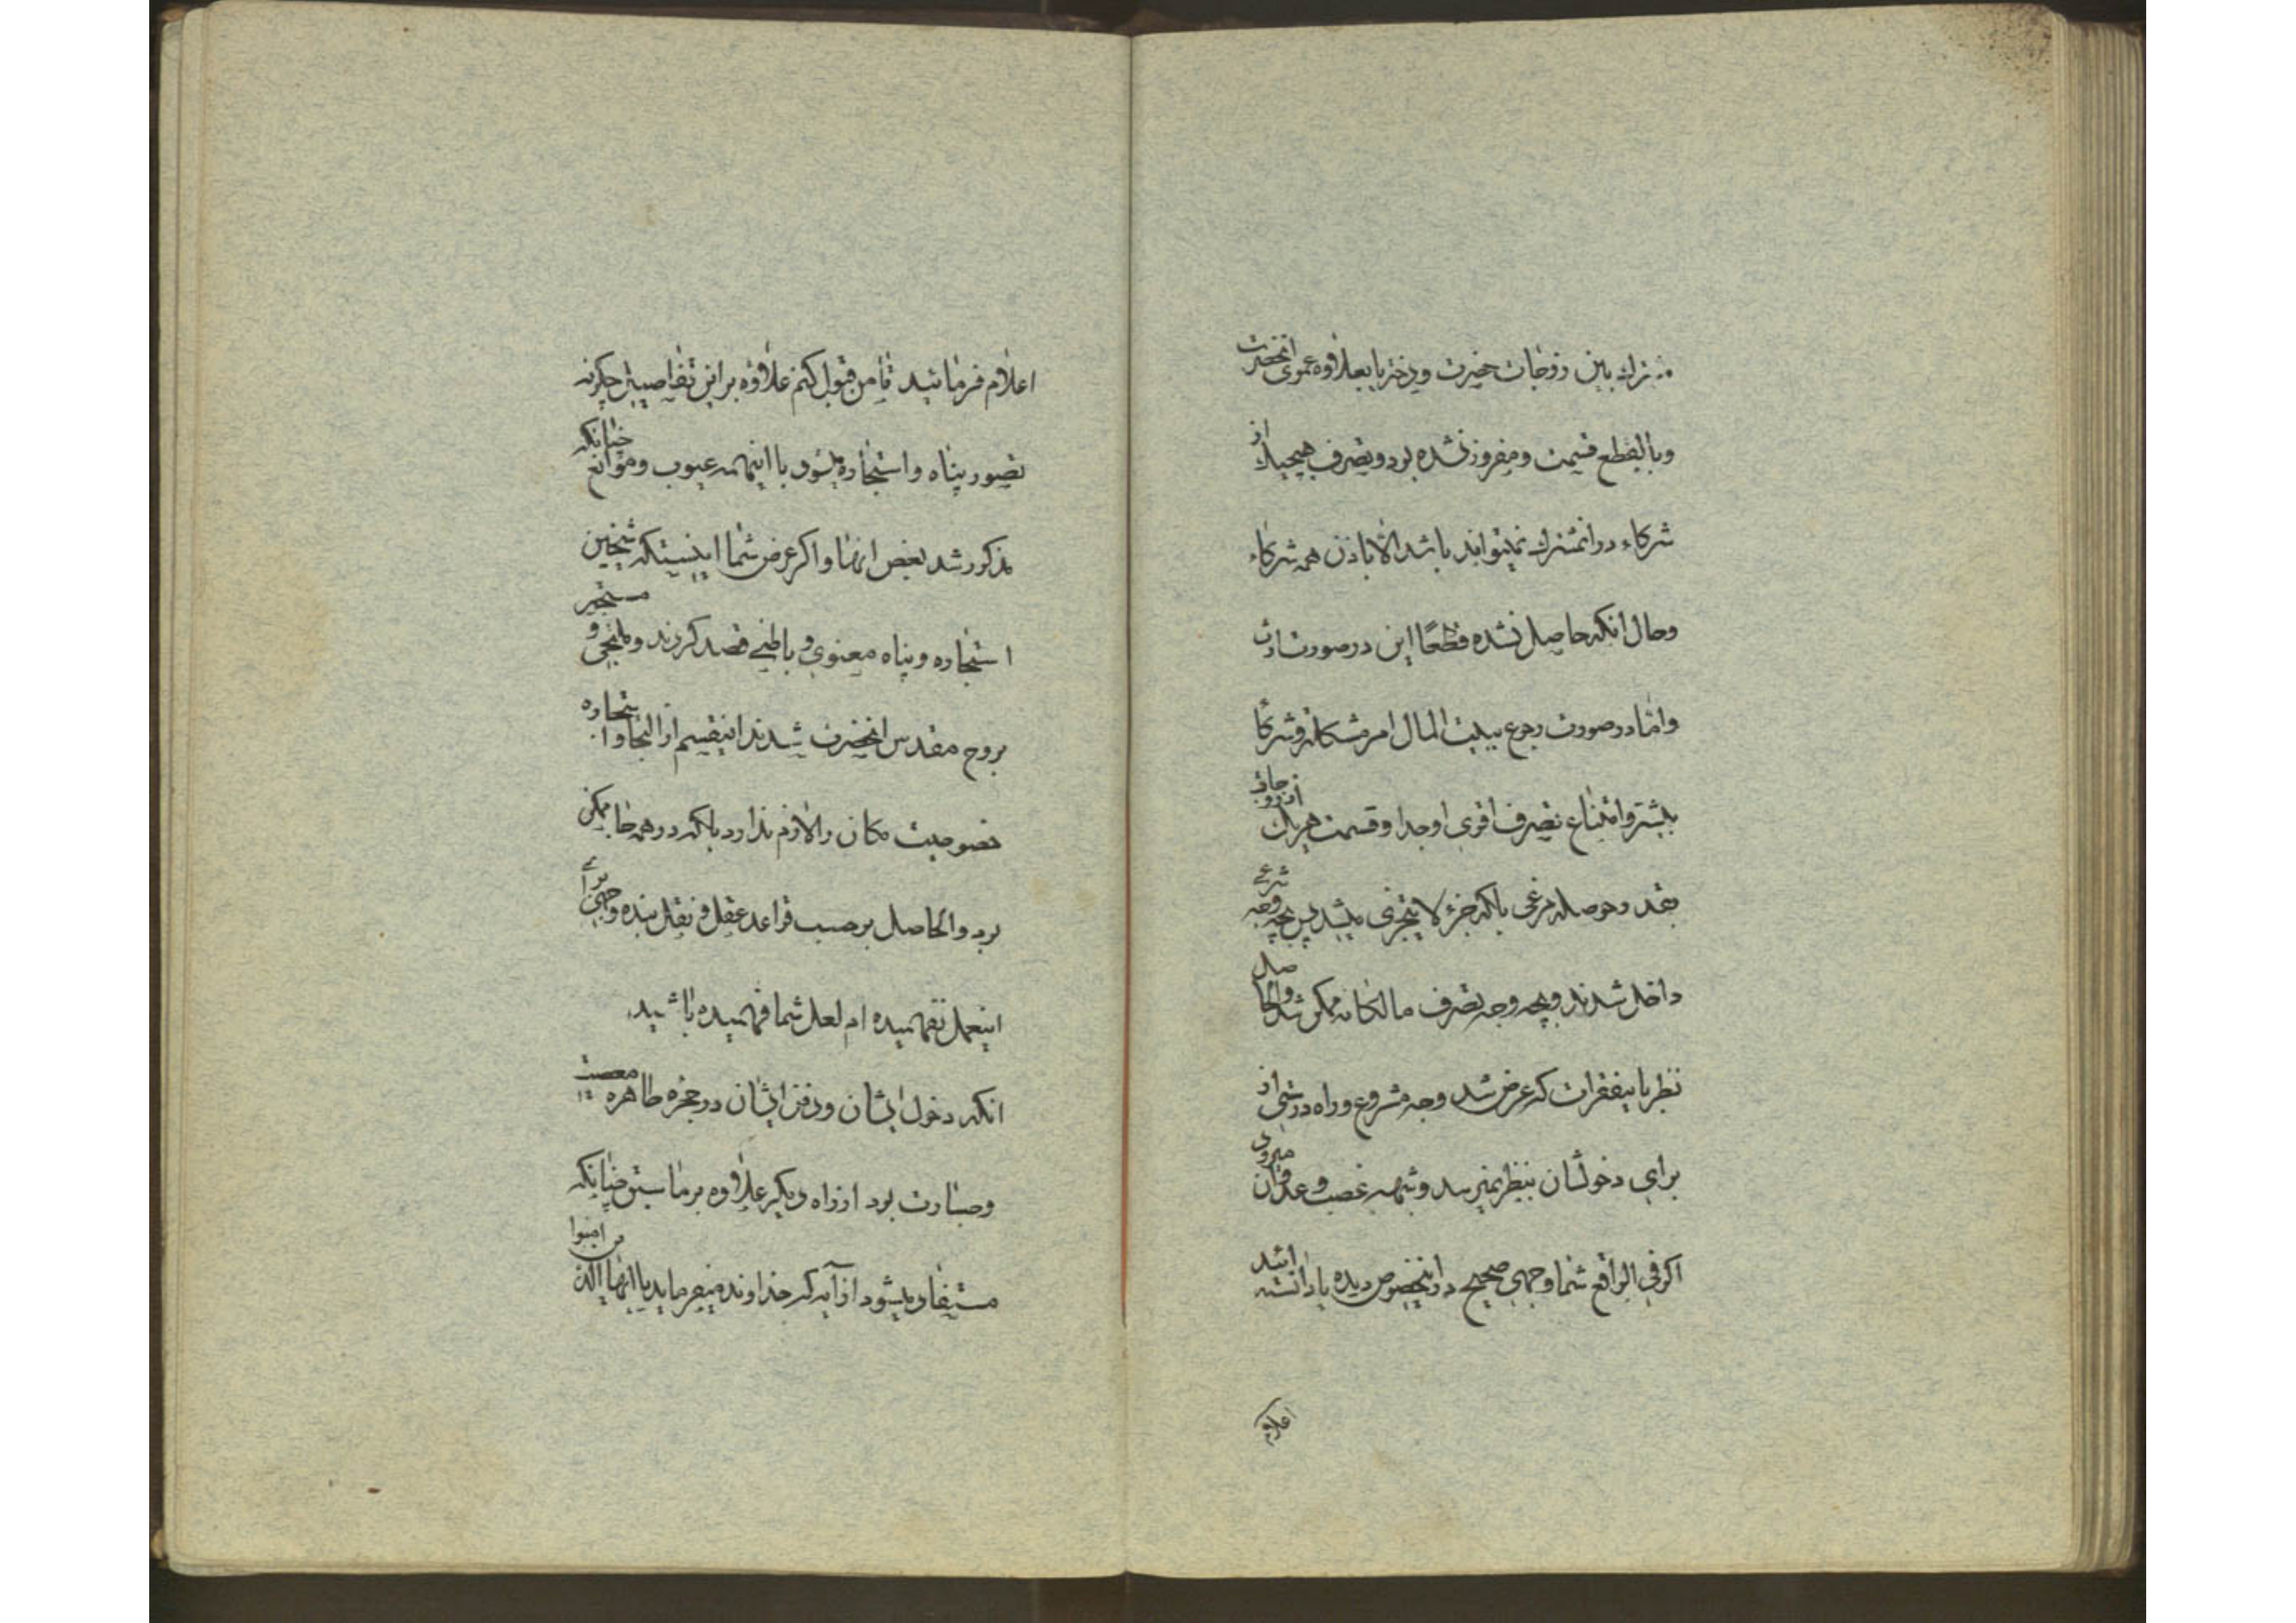 مشترك بین زوجات حضرت و دختر یا بعلاوه عموی انحضرت
و بالقطع قسمت و مفروز نشده بود و تصرف هیچیك از
شرکاء در انمشترك نمیتواند باشد الا باذن همه شرکاء
و حال انکه حاصل نشده قطعًا این در صورت ارث
و امّا در صورت رجوع ببیت المال امر مشکلتر و شرکا
بیشتر و امتناع تصرف اقوی و جدا و قسمت هریك از زوجات
بقدر حوصله مرغی بلکه جزء لا یتجزی میشد پس بچه وجه شرعی
داخل شدند و بچه وجه تصرف مالکانه ممکن شد و الحاصل
نظر باینفقرات که عرض شد وجه مشروع و راه درستی از
برای دخولشان بنظر نمیرسد و شبهه غصب و عدوان میرود
اکر فی الواقع شما وجهی صحیح در اینخصوص دیده یا دانسته ایند
اعلام
اعلام فرمائید تا من قبول کنم علاوه بر این تفاصیل چکونه
تصور پناه و استجاره میشود با اینهمه عیوب و موانع چنانکه
مذکور شد بعض انها و اکر عرض شما اینستکه شیخین
استجاره و پناه معنوی و باطنی قصد کردند و ملتجی و مستجیر
بروح مقدس انحضرت شدند اینقسم از التجا و استجاره
خصوصیت مکان را لازم ندارد بلکه در همه جا ممکن
بود و الحاصل بر حسب قواعد عقل و نقل بنده وجهی برای
اینعمل نفهمیده ام لعل شما فهمیده باشید
انکه دخول ایشان و دفن ایشان در حجره طاهره معصیت
و جسارت بود از راه دیکر علاوه بر ما سبق چنانکه
مستفاد میشود از آیه که خداوند میفرماید یا ایها الذین امنوا